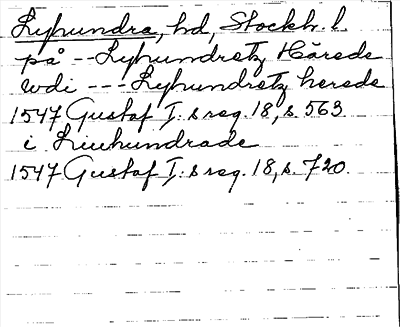 Lyhundra, hd, Stockh. l.
på -- Lyhundretz Härade
wdi --- Lyhundretz herede
1547 Gustaf I:s reg. 18, s. 563
i Liuhundrade
1547 Gustaf I:s reg. 18, s. 720.